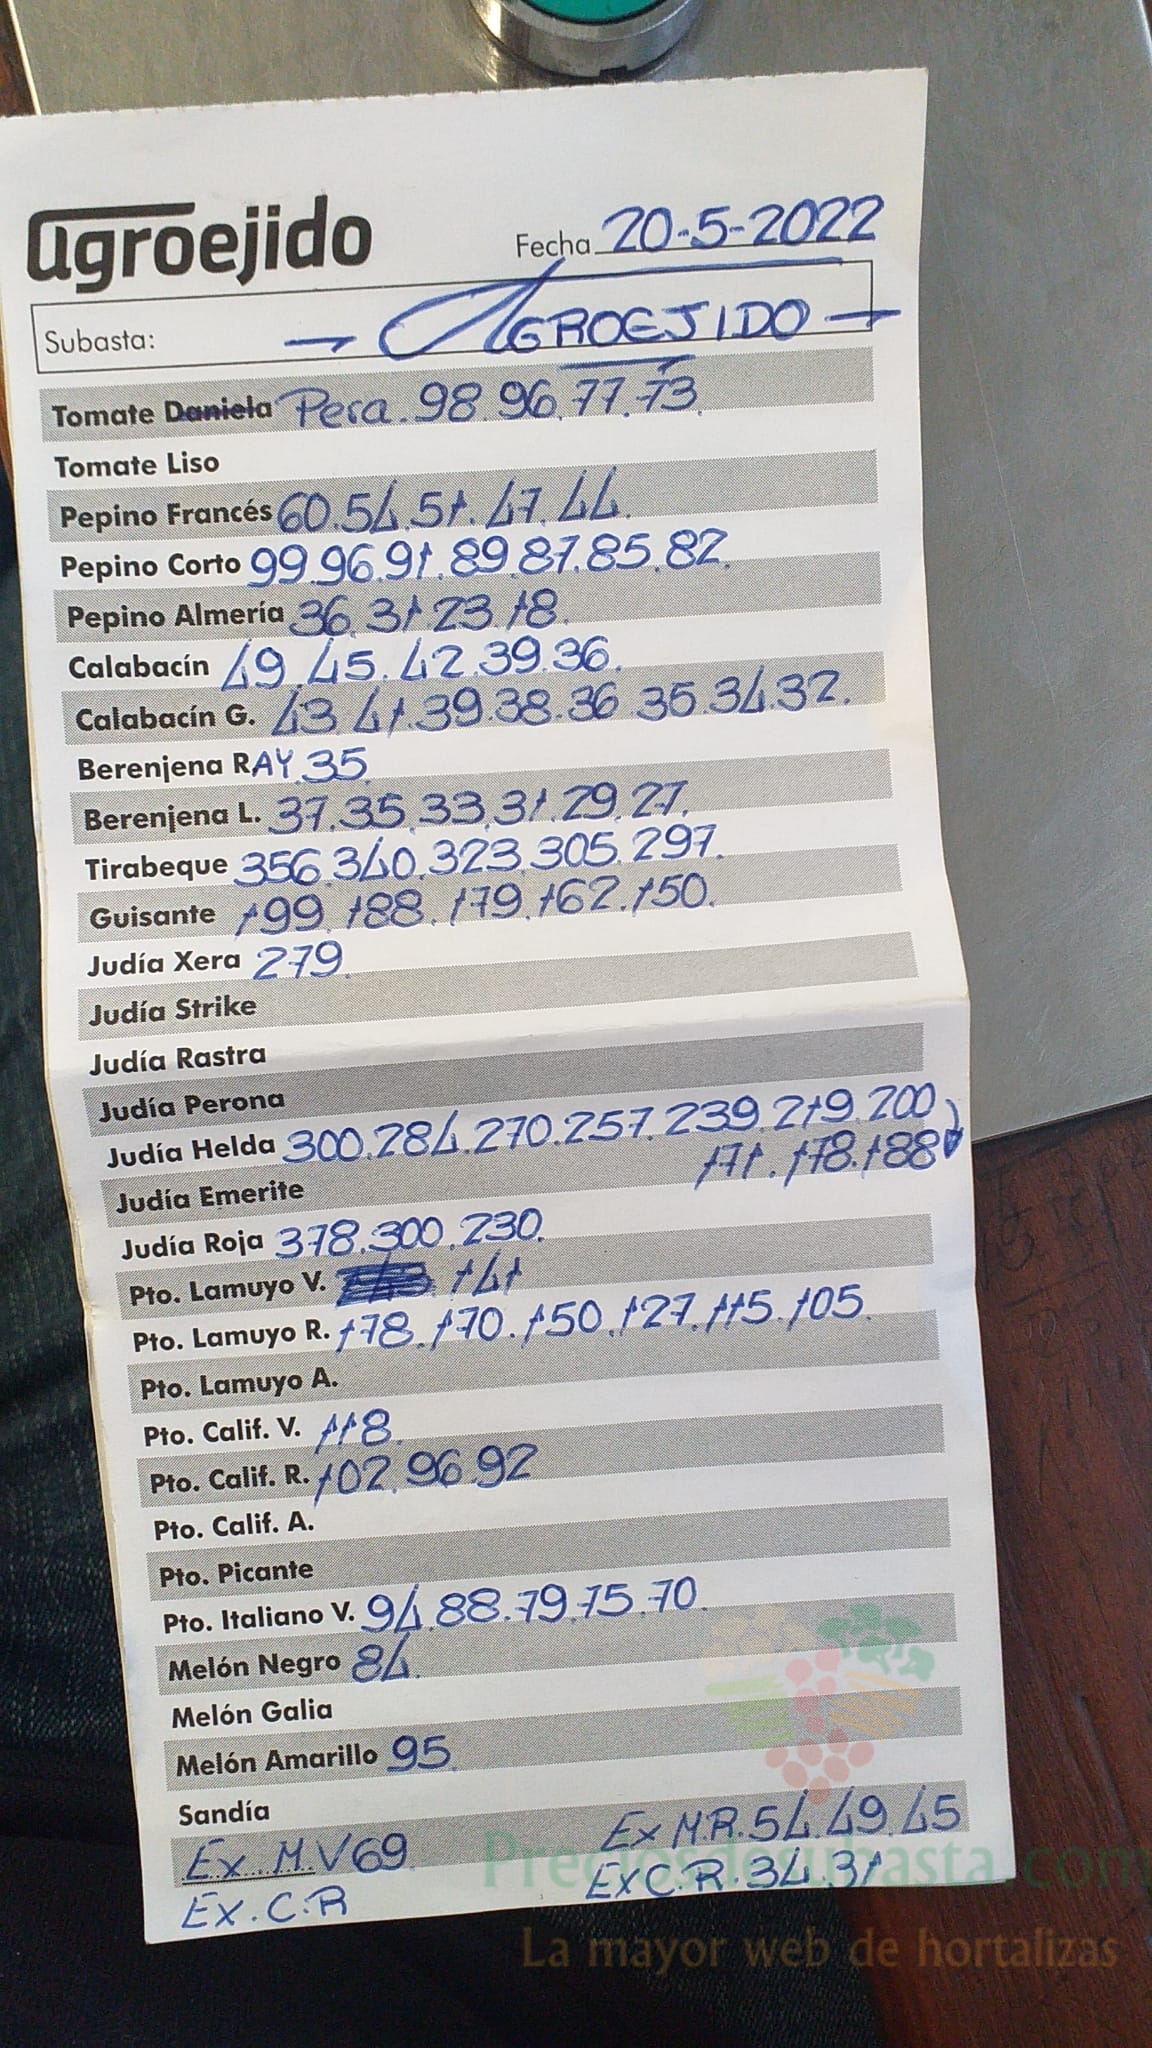 agroejido
Fecha 20-5-2022
Subasta: - AGROEJIDO -
Tomate Daniela Pera. 98. 96. 77. 73.
Tomate Liso
Pepino Francés 60. 54. 51. 47. 44.
Pepino Corto 99. 96. 91. 89. 87. 85. 82.
Pepino Almería 36. 31. 23. 18.
Calabacín 49. 45. 42. 39. 36.
Calabacín G. 43. 41. 39. 38. 36. 35. 34. 32.
Berenjena RAY. 35
Berenjena L. 37. 35. 33. 31. 29. 27.
Tirabeque 356. 340. 323. 305. 297.
Guisante 199. 188. 179. 162. 150.
Judía Xera 279.
Judía Strike
Judía Rastra
Judía Perona
Judía Helda 300. 284. 270. 257. 239. 219. 200
171. 178. 188
Judía Emerite
Judía Roja 378. 300. 230.
Pto. Lamuyo V. 141
Pto. Lamuyo R. 178. 170. 150. 127. 115. 105.
Pto. Lamuyo A.
Pto. Calif. V. 118.
Pto. Calif. R. 102. 96. 92
Pto. Calif. A.
Pto. Picante
Pto. Italiano V. 94. 88. 79. 75. 70.
Melón Negro 84.
Melón Galia
Melón Amarillo 95.
Sandía
Ex. M. V 69. Ex M.R. 54. 49. 45
Ex. C. R Ex C. R. 34. 31
Preciosdesubasta.com
La mayor web de hortalizas